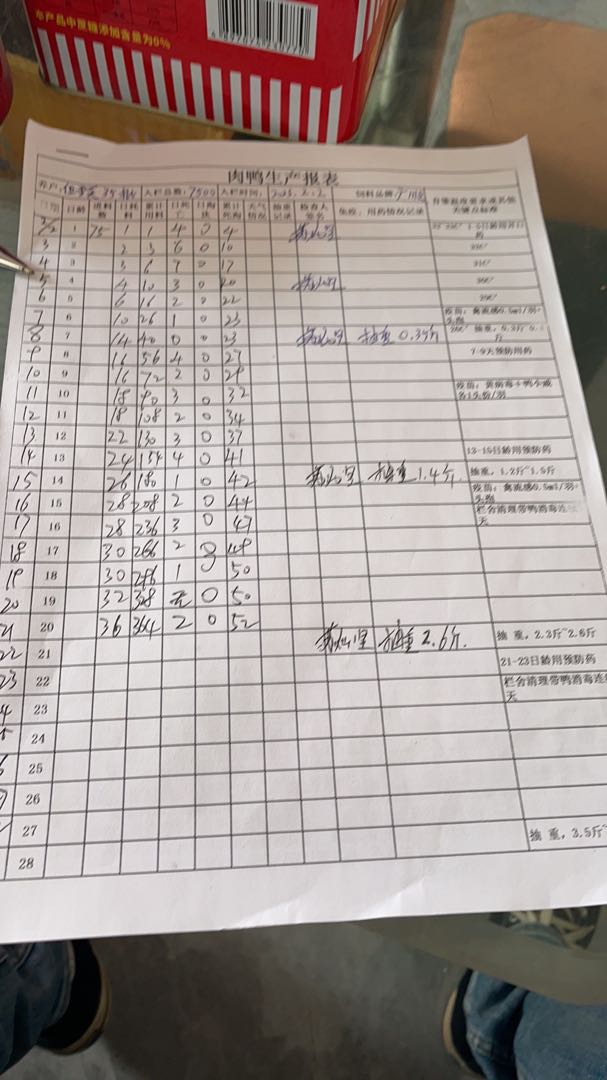 本产品中蔗糖添加含量为0%
肉鸭生产报表
养户: 入栏总数: 7500 入栏时间: 饲料品牌:
日期 日龄 进料数 日耗料 累计用料 日死亡 日淘汰 累计死淘 天气情况 抽重记录 检查人签名 免疫、用药情况记录
2/2 1 75 1 1 4 0 4
3 2 2 3 6 0 10
4 3 3 6 7 0 17
5 4 4 10 3 0 20
6 5 6 16 2 0 22
7 6 10 26 1 0 23 疫苗:禽流感0.5ml/羽+头孢
8 7 14 40 0 0 23 抽重 0.35斤
9 8 16 56 4 0 27 7-9天预防用药
10 9 16 72 2 0 29
11 10 18 90 3 0 32
12 11 18 108 2 0 34
13 12 22 130 3 0 37
14 13 24 154 4 0 41 13-15日龄用预防药
15 14 26 180 1 0 42 抽重 1.4斤. 抽重,1.2斤~1.5斤
16 15 28 208 2 0 44 疫苗:禽流感0.5ml/羽+头孢
17 16 28 236 3 0 47 栏舍清理带鸭消毒连续 天
18 17 30 266 2 0 49
19 18 30 296 1 0 50
20 19 32 328 0 50
21 20 36 364 2 0 52 抽重 2.6斤. 抽 重,2.3斤~2.6斤
22 21 21-23日龄用预防药
23 22 栏舍清理带鸭消毒连续 天
4 23
24
25
26
27 抽 重,3.5斤~
28